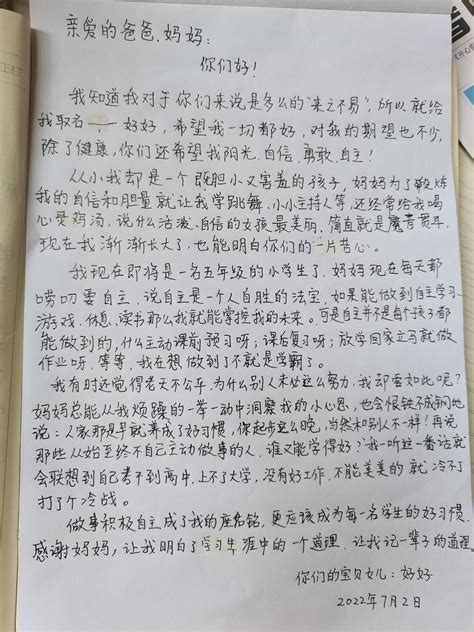 亲爱的爸爸、妈妈：
你们好！
我知道我对于你们来说是多么的“来之不易”，所以就给
我取名——好好，希望我一切都好，对我的期望也不少，
除了健康，你们还希望我阳光、自信、勇敢、自主！
从小我却是一个既胆小又害羞的孩子，妈妈为了锻炼
我的自信和胆量就让我学跳舞、小小主持人等，还经常给我喝
心灵鸡汤，说什么活泼、自信的女孩最美丽，简直就是魔音贯耳，
现在我渐渐长大了，也能明白你们的一片苦心。
我现在即将是一名五年级的小学生了，妈妈现在每天都
唠叨要自主，说自主是一个人自胜的法宝，如果能做到自主学习、
游戏、休息、读书那么我就能掌握我的未来。可是自主并不是每个孩子都
能做到的，什么主动课前预习呀；课后复习呀；放学回家立马就做
作业呀，等等，我在想做到了不就是学霸了。
我有时还觉得老天不公平，为什么别人未必这么努力，我却要如此呢？
妈妈总能从我烦躁的一举一动中洞察我的小心思，也会恨铁不成钢地
说：人家那是早就养成了好习惯，你起步这么晚，当然和别人不一样！再说
那些从始至终不自己主动做事的人，谁又能学得好？我一听这一番话就
会联想到自己考不到高中，上不了大学，没有好工作，不能美美的就冷不丁
打了个冷战。
做事积极自主成了我的座右铭，更应该成为每一名学生的好习惯，
感谢妈妈，让我明白了学习生涯中的一个道理，让我记一辈子的道理
你们的宝贝女儿：好好
2022年7月2日